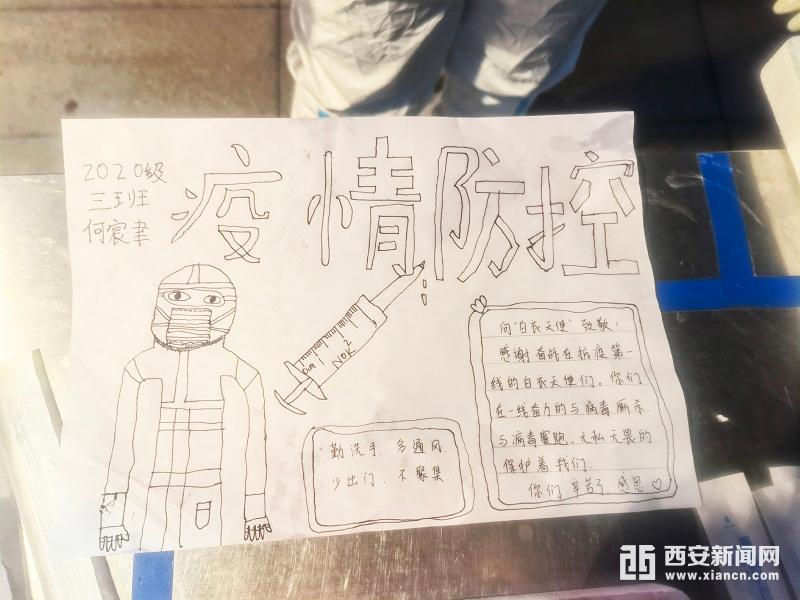 2020级
三班
何宸聿
疫情防控
1
2
3
勤洗手、多通风、
少出门、不聚集
向"白衣天使"致敬！
感谢奋战在抗疫第一
线的白衣天使们。你们
在一线奋力的与病毒厮杀.
与病毒赛跑，无私无畏的
保护着我们.
你们辛苦了，感恩♡
西安新闻网
www.xiancn.com